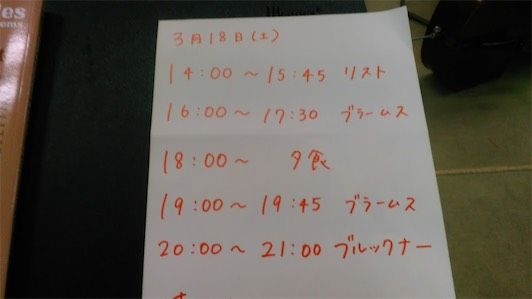 3月18日(土)
14:00〜15:45 リスト
16:00〜17:30 ブラームス
18:00〜 夕食
19:00〜19:45 ブラームス
20:00〜21:00 ブルックナー